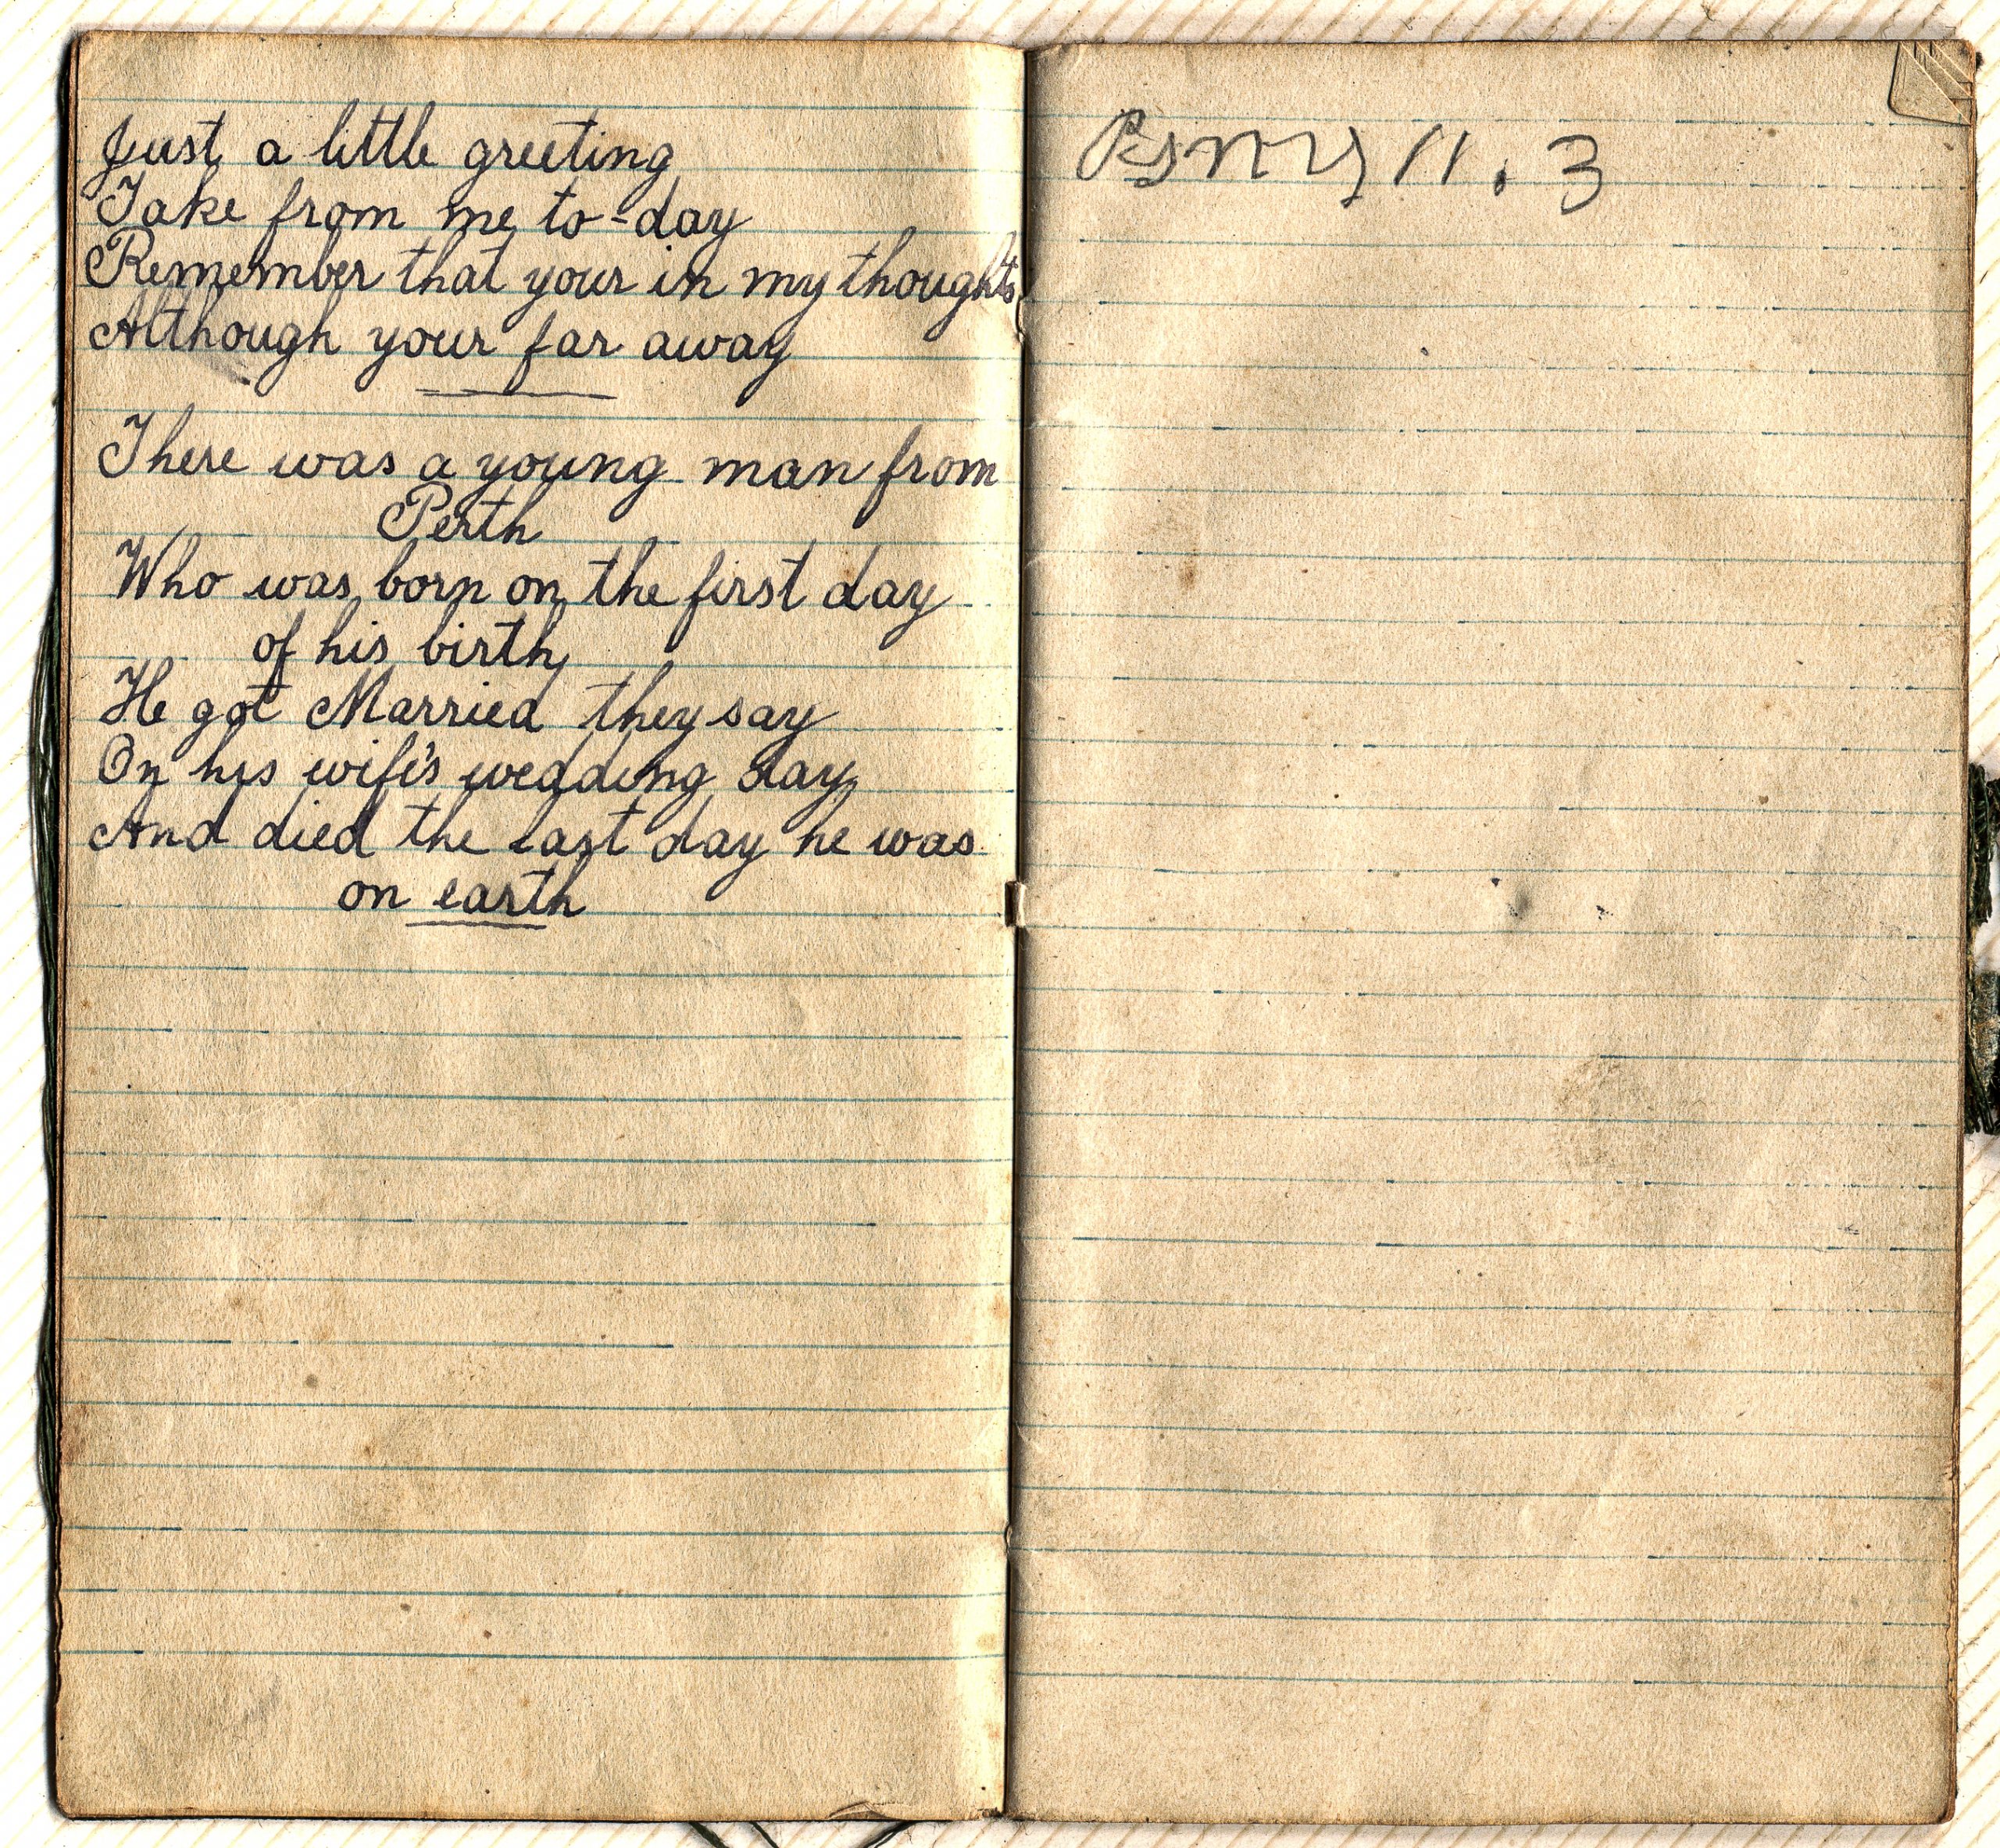 Just a little greeting
Take from me to-day
Remember that your in my thoughts
Although your far away
There was a young man from
Perth
Who was born on the first day
of his birth
He got Married they say
On his wife's wedding day
And died the last day he was
on earth
11.3